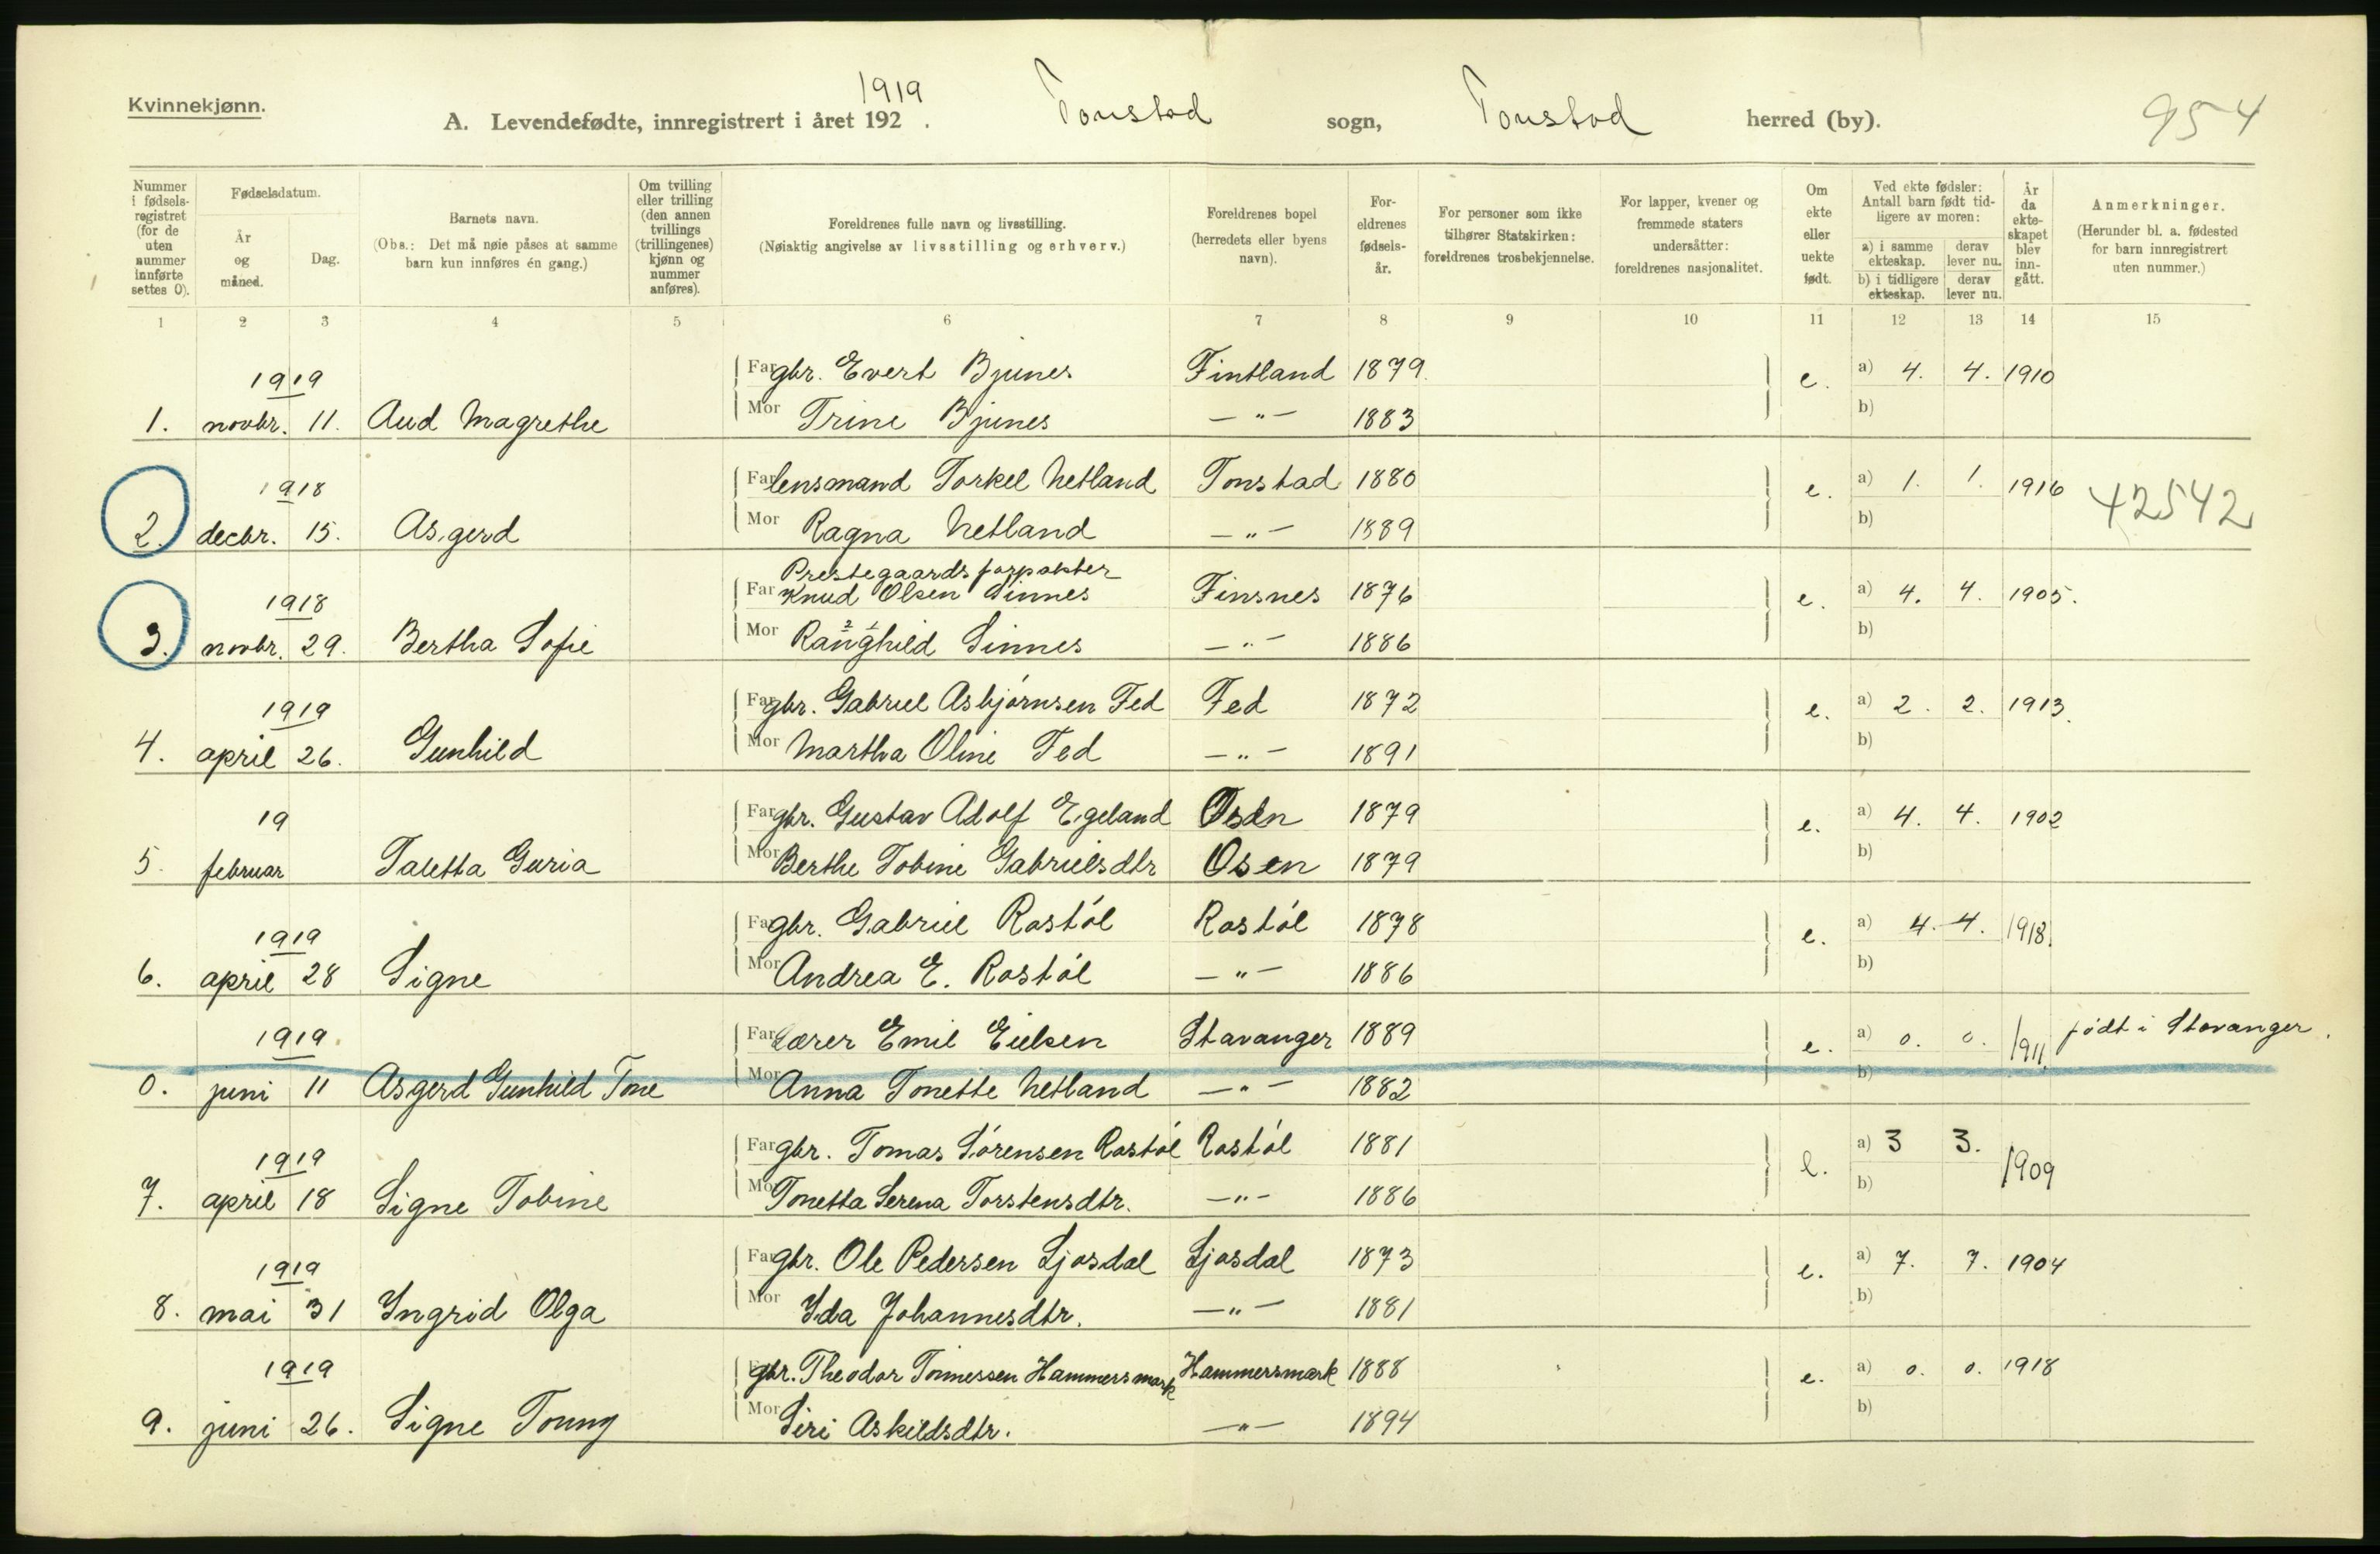 Kvinnekjønn.
1919
A. Levendefødte, innregistrert i året 192 . Tonstad sogn, Tonstad herred (by).
954
Nummer i fødsels-registret (for de uten nummer innførte settes 0).
Fødselsdatum.
År og måned.
Dag.
Barnets navn.
(Obs.: Det må nøie påses at samme barn kun innføres én gang.)
Om tvilling eller trilling (den annen tvillings (trillingenes) kjønn og nummer anføres).
Foreldrenes fulle navn og livsstilling.
(Nøiaktig angivelse av livsstilling og erhverv.)
Foreldrenes bopel (herredets eller byens navn).
For-eldrenes fødsels-år.
For personer som ikke tilhører Statskirken: foreldrenes trosbekjennelse.
For lapper, kvener og fremmede staters undersåtter: foreldrenes nasjonalitet.
Om ekte eller uekte født.
Ved ekte fødsler: Antall barn født tid-ligere av moren:
a) i samme ekteskap. derav lever nu.
b) i tidligere ekteskap. derav lever nu.
År da ekte-skapet blev inn-gått.
Anmerkninger.
(Herunder bl. a. fødested for barn innregistrert uten nummer.)
1 2 3 4 5 6 7 8 9 10 11 12 13 14 15
1919 Far gbr. Evert Bjunes Fintland 1879. e. a) 4. 4. 1910
1. novbr. 11. Aud Magrethe Mor Trine Bjunes — " — 1883 b)
1918 Far lensmand Torkel Netland Tonstad 1880 e. a) 1. 1. 1916 42542
2. decbr. 15. Asgerd Mor Ragna Netland — " — 1889 b)
Prestegaardsforpakter
1918 Far Knud Olsen Sinnes Finsnes 1876 e. a) 4. 4. 1905.
3. novbr. 29. Bertha Sofie Mor Ranghild Sinnes — " — 1886 b)
1919 Far gbr. Gabriel Asbjørnsen Fed Fed 1872 e. a) 2. 2. 1913.
4. april 26. Gunhild Mor Martha Oline Fed — " — 1891 b)
19 Far gbr. Gustav Adolf Egeland Osen 1879 e. a) 4. 4. 1902
5. februar Taletta Guria Mor Berthe Tobine Gabrielsdtr Osen 1879 b)
1919 Far gbr. Gabriel Rostøl Rostøl 1878 e. a) 4. 4. 1918.
6. april 28 Signe Mor Andrea E. Rostøl — " — 1886 b)
1919. Far Lærer Emil Eielsen Stavanger 1889 e. a) 0. 0. 1911. født i Stavanger.
0. juni 11 Asgerd Gunhild Tone Mor Anna Tonette Netland — " — 1882 b)
1919 Far gbr. Tomas Sørensen Rostøl Rostøl 1881 e. a) 3 3. 1909
7. april 18 Signe Tobine Mor Tonetta Serena Torstensdtr. — " — 1886 b)
1919 Far gbr. Ole Pedersen Ljosdal Ljosdal 1873 e. a) 7. 7. 1904
8. mai 31 Ingrid Olga Mor Ida Johannesdtr. — " — 1881 b)
1919 Far gbr. Theodor Tønnessen Hammersmark Hammersmark 1888 e. a) 0. 0. 1918
9. juni 26. Signe Tonny Mor Siri Askildsdtr. — " — 1894 b)